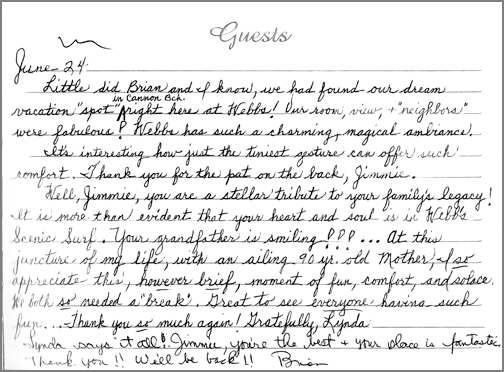 Guests
June 24
Little did Brian and I know, we had found our dream
in Cannon Bch.
vacation "spot" right here at Webbs! Our room, view, + "neighbors"
were fabulous! Webbs has such a charming, magical ambiance.
It's interesting how just the tiniest gesture can offer such
comfort. Thank you for the pat on the back, Jimmie.
Well, Jimmie, you are a stellar tribute to your family's legacy!
It is more than evident that your heart and soul is in Webb's
Scenic Surf. Your grandfather is smiling!!! ... At this
juncture of my life, with an ailing 90 yr. old Mother, I so
appreciate this, however brief, moment of fun, comfort, and solace.
We both so needed a "break". Great to see everyone having such
fun... Thank you so much again! Gratefully, Lynda
Lynda says it all! Jimmie, you're the best + your place is fantastic.
Thank you!! Will be back!! Brian